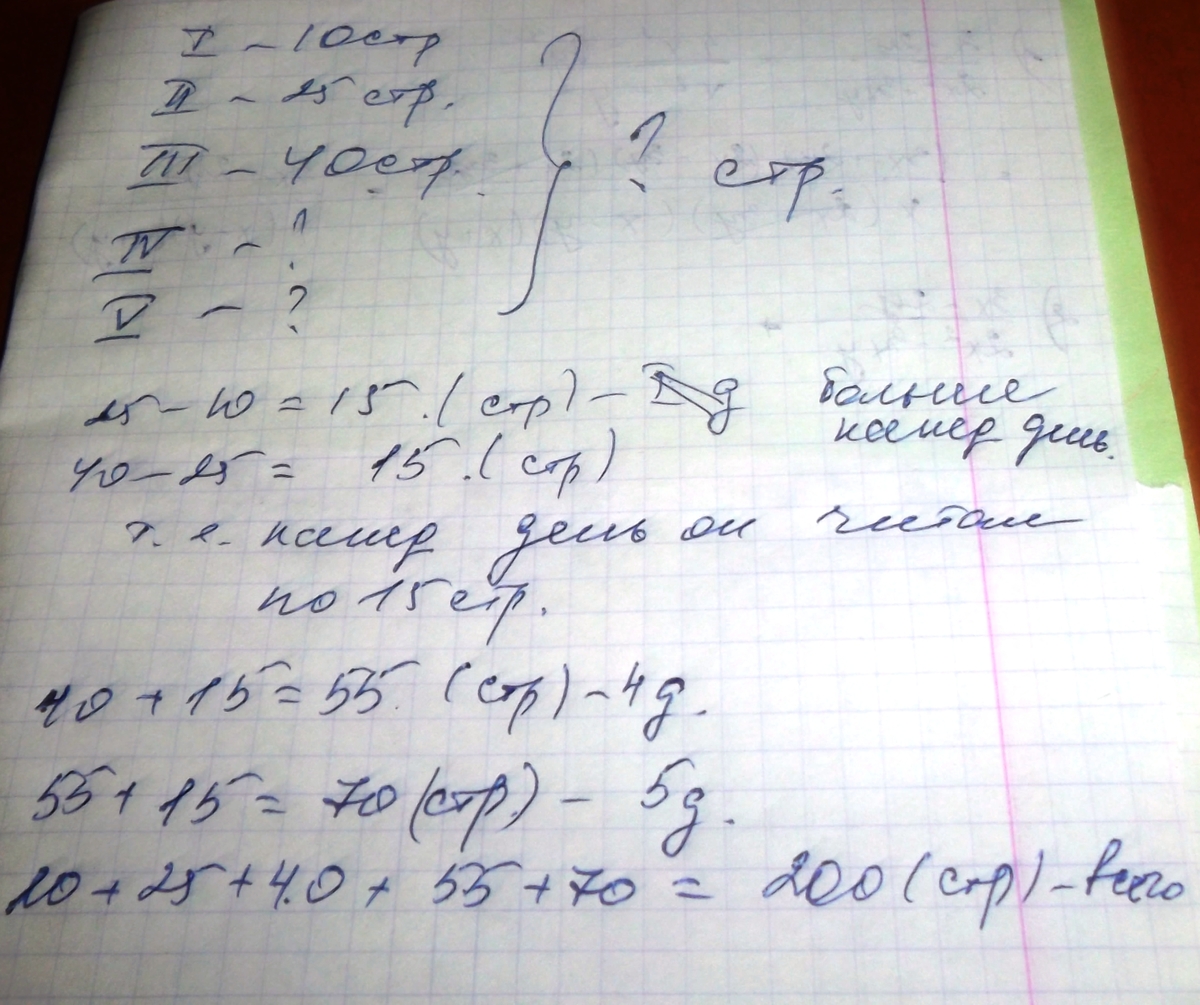 I - 10 стр
II - 25 стр.
III - 40 стр.
IV - ?
V - ?
? стр.
25 - 10 = 15 (стр) - больше
кажд день.
40 - 25 = 15 (стр)
т. е. кажд день он читал
по 15 стр.
40 + 15 = 55 (стр) - 4 д.
55 + 15 = 70 (стр.) - 5 д.
10 + 25 + 40 + 55 + 70 = 200 (стр) - всего